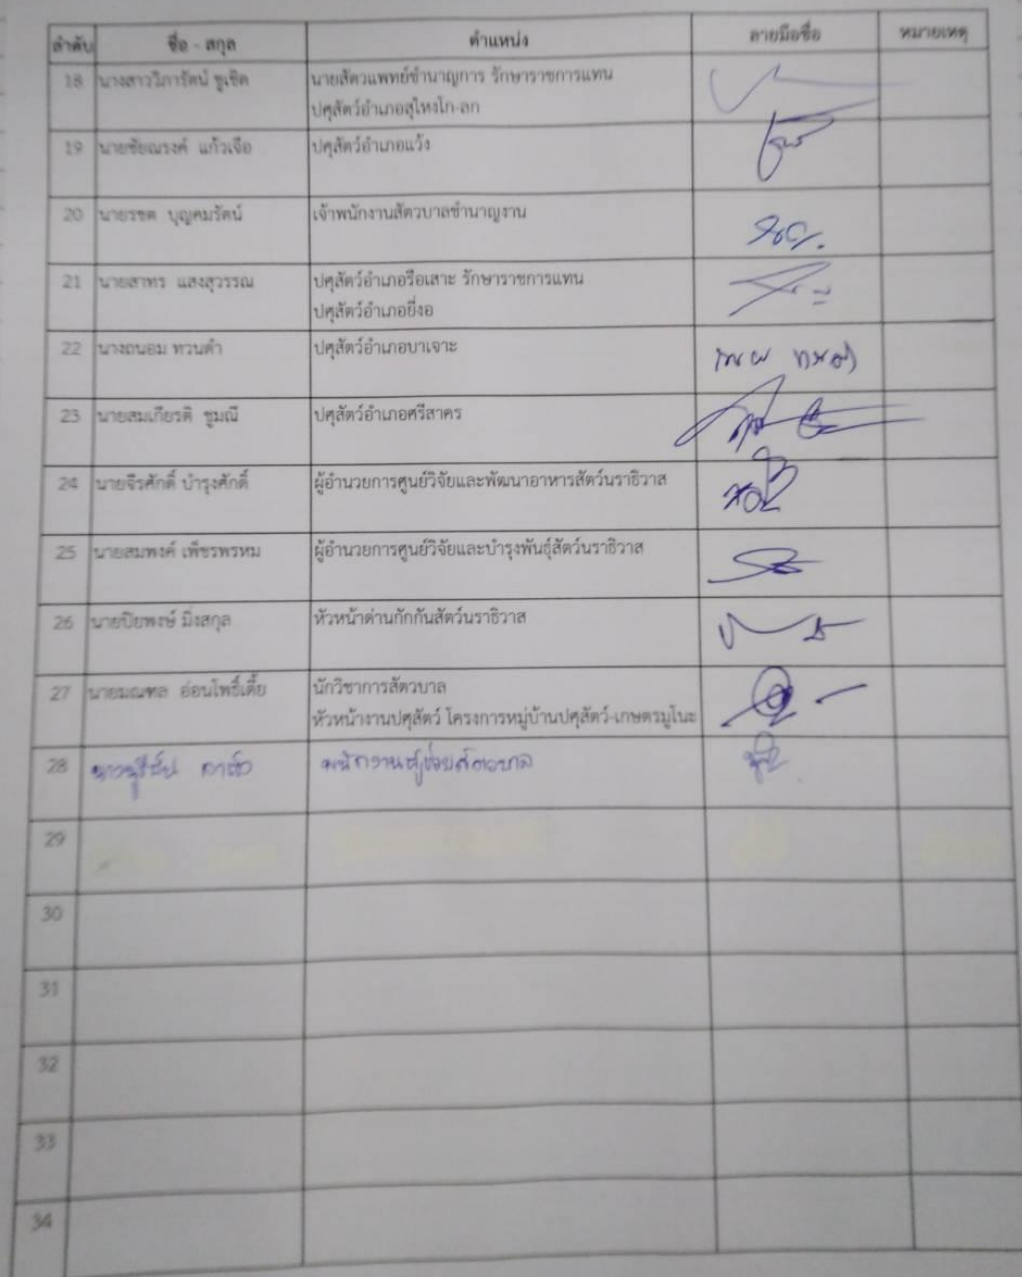 ลำดับ ชื่อ - สกุล ตำแหน่ง ลายมือชื่อ หมายเหตุ
18 นางสาววิภารัตน์ ชูเชิด นายสัตวแพทย์ชำนาญการ รักษาราชการแทน
ปศุสัตว์อำเภอสุไหงโก-ลก
19 นายชัยณรงค์ แก้วเจือ ปศุสัตว์อำเภอแว้ง
20 นายรชต บุญคมรัตน์ เจ้าพนักงานสัตวบาลชำนาญงาน
21 นายสาทร แสงสุวรรณ ปศุสัตว์อำเภอรือเสาะ รักษาราชการแทน
ปศุสัตว์อำเภอยี่งอ
22 นางถนอม ทวนดำ ปศุสัตว์อำเภอบาเจาะ
23 นายสมเกียรติ ชูมณี ปศุสัตว์อำเภอศรีสาคร
24 นายจีรศักดิ์ บำรุงศักดิ์ ผู้อำนวยการศูนย์วิจัยและพัฒนาอาหารสัตว์นราธิวาส
25 นายสมพงค์ เพ็ชรพรหม ผู้อำนวยการศูนย์วิจัยและบำรุงพันธุ์สัตว์นราธิวาส
26 นายปิยพงษ์ มิ่งสกุล หัวหน้าด่านกักกันสัตว์นราธิวาส
27 นายมณฑล อ่อนโพธิ์เตี้ย นักวิชาการสัตวบาล
หัวหน้างานปศุสัตว์ โครงการหมู่บ้านปศุสัตว์-เกษตรมูโนะ
28 พนักงานผู้ช่วยสัตวบาล
29
30
31
32
33
34